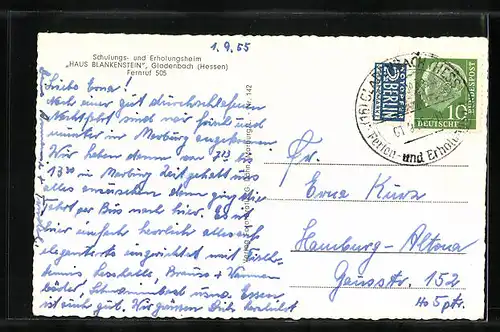 1.9.55
Schulungs- und Erholungsheim
„HAUS BLANKENSTEIN", Gladenbach (Hessen)
Fernruf 505
Liebe Erna!
Nach einer gut durchschlafenen
Nachtfahrt sind wir frisch und
munter in Marburg angekommen
Wir haben dann von 7 bis
13 30 in Marburg Zeit gehabt uns
alles anzusehen dann ging die
Fahrt per Bus nach hier. Es ist
hier einfach herrlich alles auf
eleganteste eingerichtet mit
Brause + Wannen
bäder, Schwimmbad usw. Essen
ist auch gut. Wir grüßen Dich herzlichst
Nr. 142
NOTOPFER
2 BERLIN
STEUERMARKE
DEUTSCHE
BUNDESPOST
10
(16) GLADENBACH (HESSEN)
Ferien- und Erholungs
Fr.
Erna Kurz
Hamburg-Altona
Gausstr. 152
Ho 5ptr.